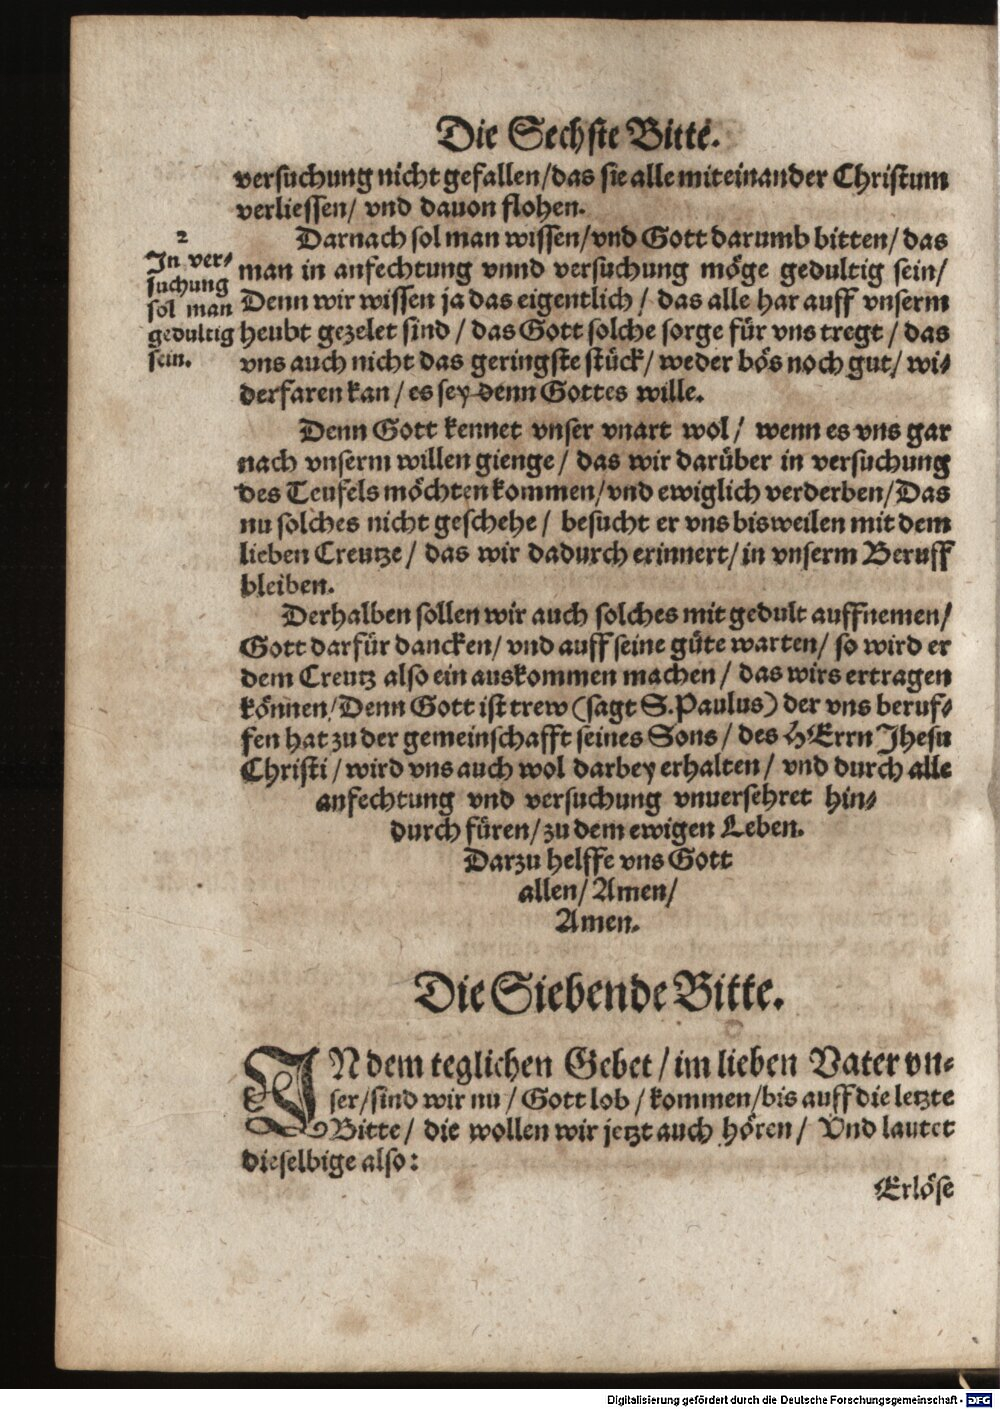 Die Sechste Bitte.
versuchung nicht gefallen/das sie alle miteinander Christum
verliessen/ vnd dauon flohen.
2
In ver-
suchung
sol man
gedultig
sein.
Darnach sol man wissen/vnd Gott darumb bitten/das
man in anfechtung vnnd versuchung möge gedultig sein/
Denn wir wissen ja das eigentlich/ das alle har auff vnserm
heubt gezelet sind/das Gott solche sorge für vns tregt/das
vns auch nicht das geringste stück/weder bös noch gut/ wi-
derfaren kan/es sey denn Gottes wille.
Denn Gott kennet vnser vnart wol/ wenn es vns gar
nach vnserm willen gienge/das wir darüber in versuchung
des Teufels möchten kommen/vnd ewiglich verderben/Das
nu solches nicht geschehe/ besucht er vns bisweilen mit dem
lieben Creutze/ das wir dadurch erinnert/in vnserm Beruff
bleiben.
Derhalben sollen wir auch solches mit gedult auffnemen/
Gott darfür dancken/ vnd auff seine güte warten/ so wird er
dem Creutz also ein auskommen machen/ das wirs ertragen
können/Denn Gott ist trew (sagt S. Paulus) der vns beruf-
fen hat zu der gemeinschafft seines Sons/ des HErrn Jhesu
Christi/wird vns auch wol darbey erhalten/ vnd durch alle
anfechtung vnd versuchung vnuersehret hin-
durch füren/zu dem ewigen Leben.
Darzu helffe vns Gott
allen/Amen/
Amen.
Die Siebende Bitte.
IN dem teglichen Gebet/im lieben Vater vn-
ser/sind wir nu/Gott lob/kommen/bis auff die letzte
Bitte/ die wollen wir jetzt auch hören/ Vnd lautet
dieselbige also:
Erlöse
Digitalisierung gefördert durch die Deutsche Forschungsgemeinschaft - DFG